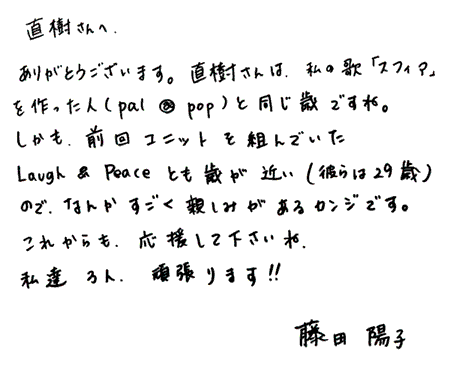 直樹さんへ.
ありがとうございます。直樹さんは、私の歌「スフィア」
を作った人(pal@pop)と同じ歳ですね。
しかも、前回ユニットを組んでいた
Laugh & Peace とも歳が近い(彼らは29歳)
ので、なんかすごく親しみがあるカンジです。
これからも、応援して下さいね.
私達3人、頑張ります!!
藤田 陽子